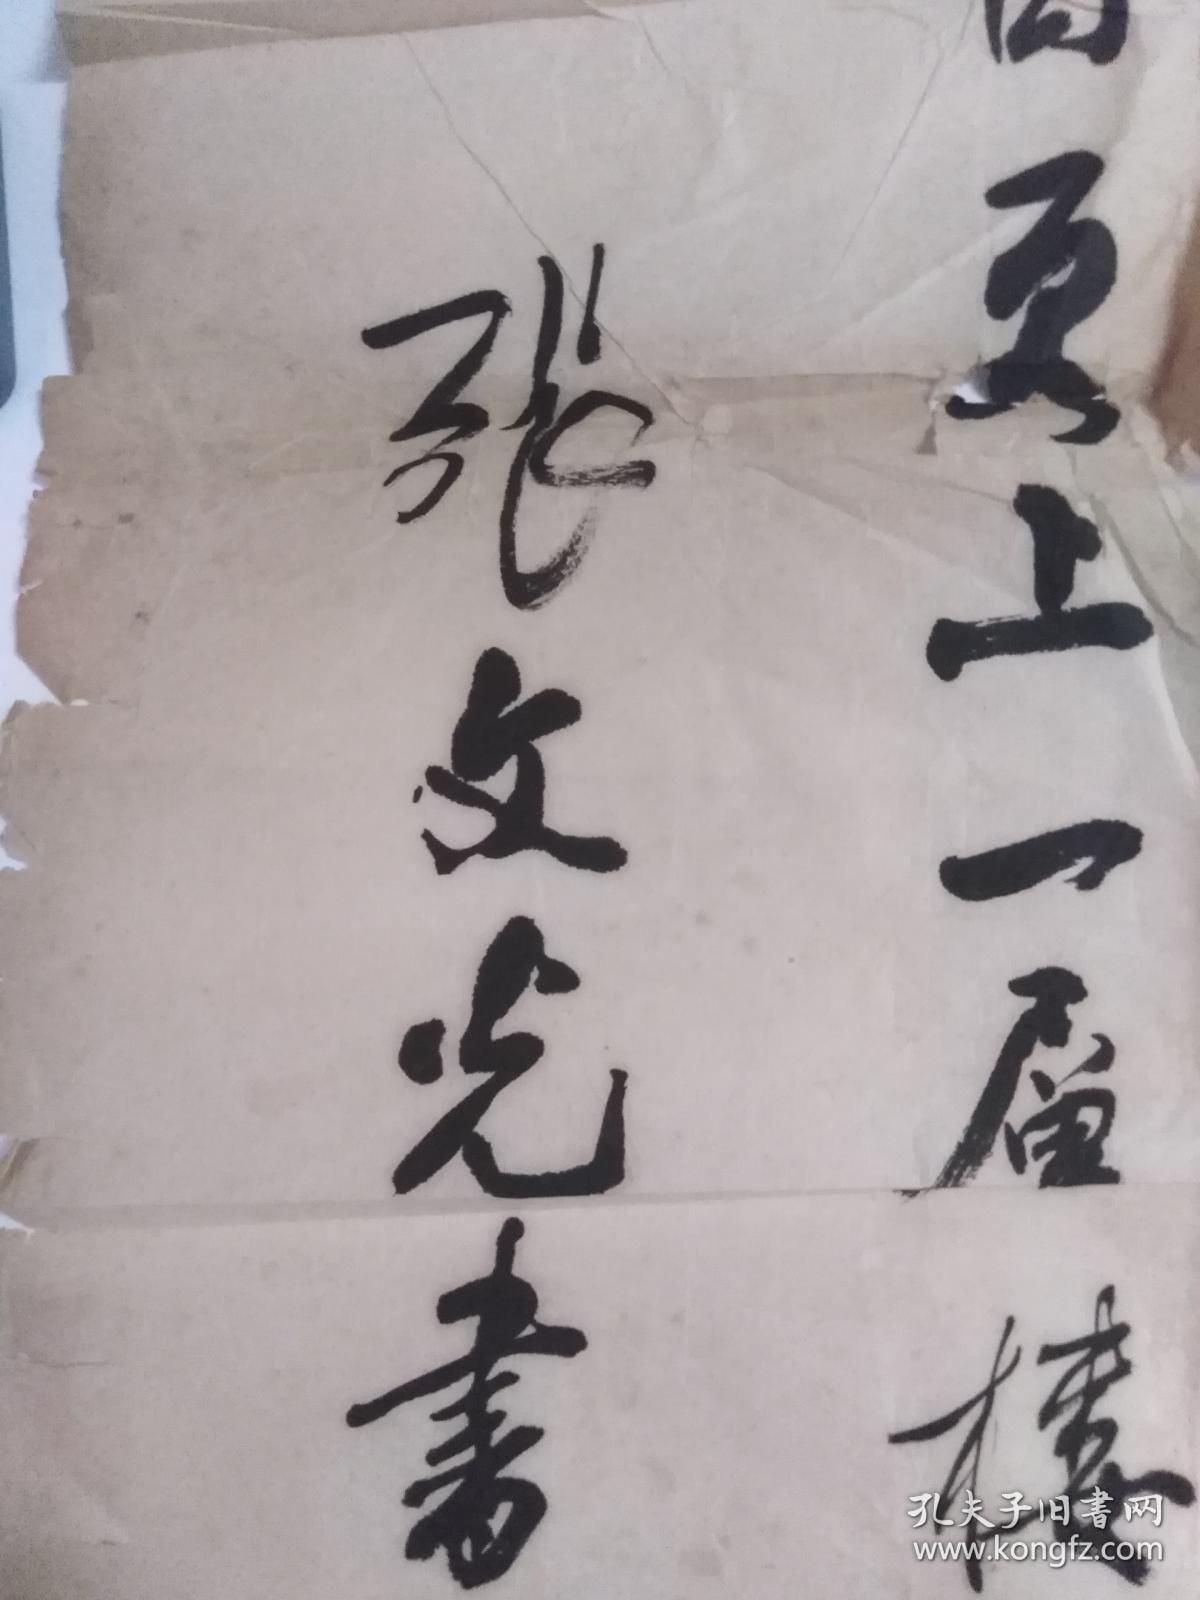 更上一层楼
张文光书
孔夫子旧书网
www.kongfz.com